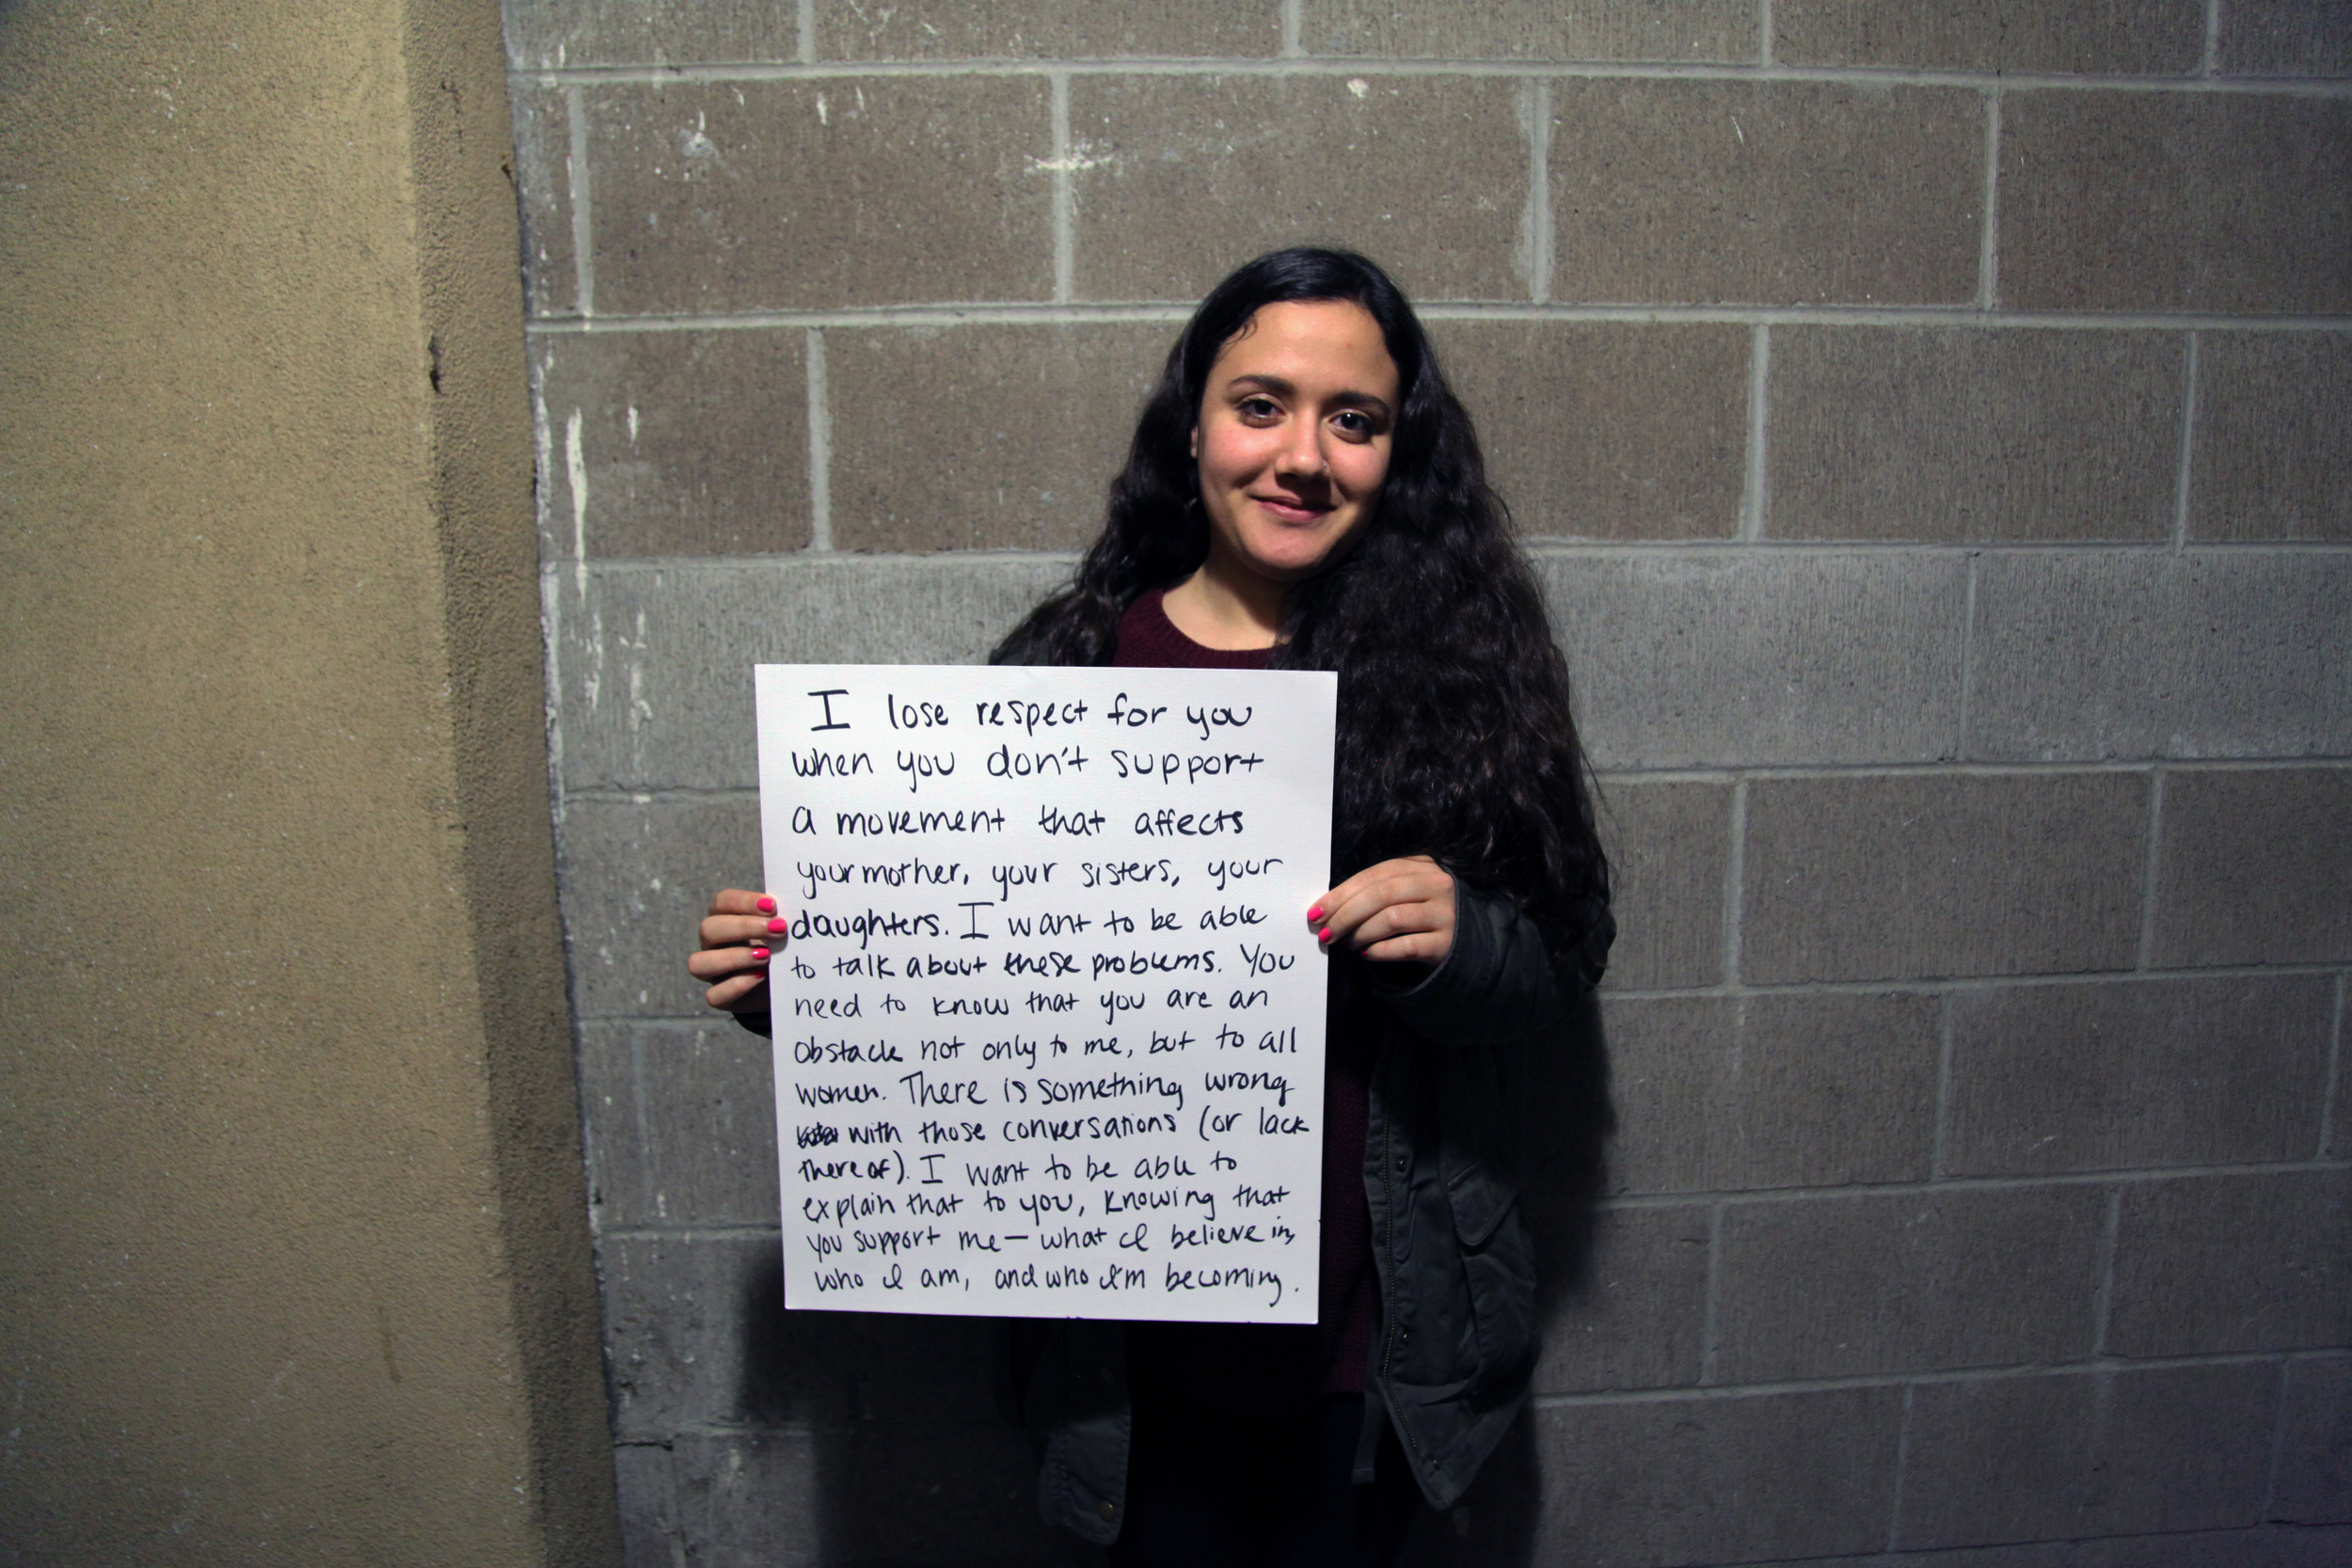 I lose respect for you
when you don't support
a movement that affects
your mother, your sisters, your
daughters. I want to be able
to talk about these problems. You
need to know that you are an
obstacle not only to me, but to all
women. There is something wrong
with those conversations (or lack
there of). I want to be able to
explain that to you, knowing that
you support me — what I believe in,
who I am, and who I'm becoming.